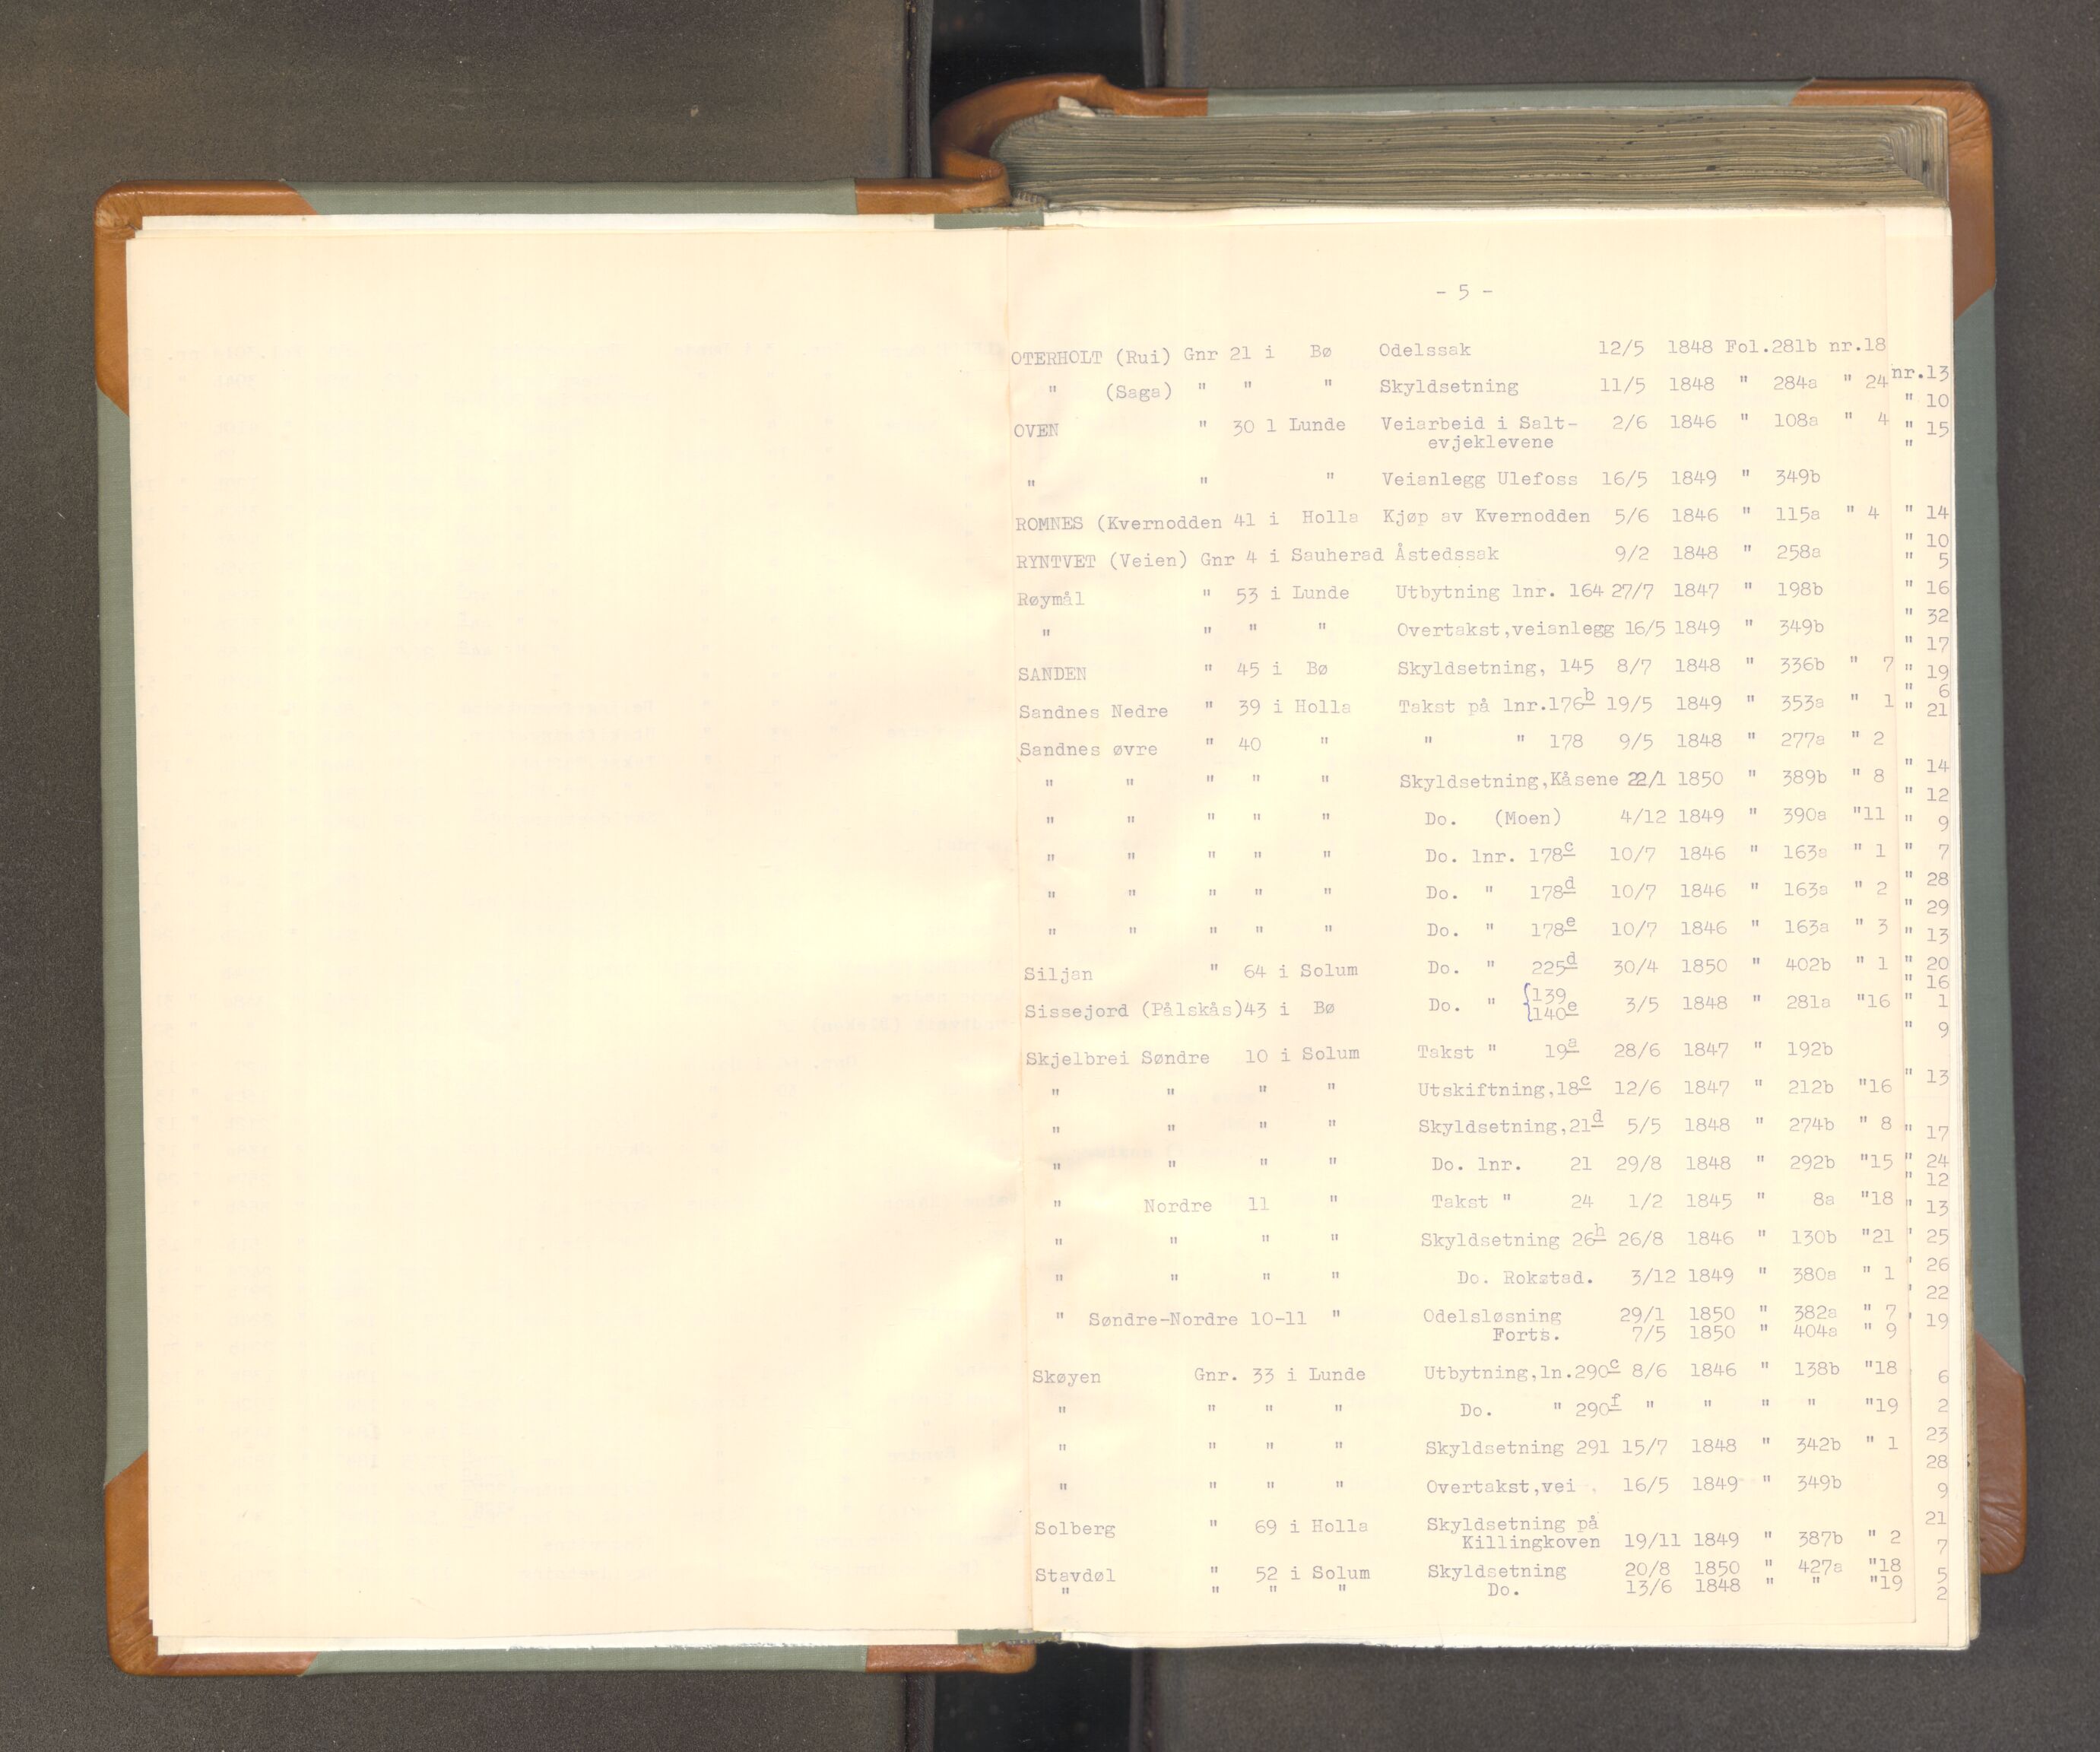 - 5 -
OTERHOLT (Rui) Gnr 21 i Bø Odelssak 12/5 1848 Fol.281b nr.18
" (Saga) " " " Skyldsetning 11/5 1848 " 284a " 24
OVEN " 30 l Lunde Veiarbeid i Salt- 2/6 1846 " 108a " 4
evjeklevene
" " " Veianlegg Ulefoss 16/5 1849 " 349b
ROMNES (Kvernodden 41 i Holla Kjøp av Kvernodden 5/6 1846 " 115a " 4
RYNTVET (Veien) Gnr 4 i Sauherad Åstedssak 9/2 1848 " 258a
Røymål " 53 i Lunde Utbytning lnr. 164 27/7 1847 " 198b
" " " " Overtakst,veianlegg 16/5 1849 " 349b
SANDEN " 45 i Bø Skyldsetning, 145 8/7 1848 " 336b " 7
Sandnes Nedre " 39 i Holla Takst på lnr.176b 19/5 1849 " 353a " 1
Sandnes øvre " 40 " " " 178 9/5 1848 " 277a " 2
" " " " " Skyldsetning,Kåsene 22/1 1850 " 389b " 8
" " " " " Do. (Moen) 4/12 1849 " 390a "11
" " " " " Do. lnr. 178c 10/7 1846 " 163a " 1
" " " " " Do. " 178d 10/7 1846 " 163a " 2
" " " " " Do. " 178e 10/7 1846 " 163a " 3
Siljan " 64 i Solum Do. " 225d 30/4 1850 " 402b " 1
Sissejord (Pålskås)43 i Bø Do. " {139 3/5 1848 " 281a "16
140e
Skjelbrei Søndre 10 i Solum Takst " 19a 28/6 1847 " 192b
" " " " Utskiftning,18c 12/6 1847 " 212b "16
" " " " Skyldsetning,21d 5/5 1848 " 274b " 8
" " " " Do. lnr. 21 29/8 1848 " 292b "15
" Nordre 11 " Takst " 24 1/2 1845 " 8a "18
" " " " Skyldsetning 26h 26/8 1846 " 130b "21
" " " " Do. Rokstad. 3/12 1849 " 380a " 1
" Søndre-Nordre 10-11 " Odelsløsning 29/1 1850 " 382a " 7
Forts. 7/5 1850 " 404a " 9
Skøyen Gnr. 33 i Lunde Utbytning,ln.290c 8/6 1846 " 138b "18
" " " " Do. " 290f " " " " "19
" " " " Skyldsetning 291 15/7 1848 " 342b " 1
" " " " Overtakst,vei 16/5 1849 " 349b
Solberg " 69 i Holla Skyldsetning på
Killingkoven 19/11 1849 " 387b " 2
Stavdøl " 52 i Solum Skyldsetning 20/8 1850 " 427a "18
" " " " Do. 13/6 1848 " " "19
nr.13
" 10
" 15
"
" 14
" 10
" 5
" 16
" 32
" 17
" 19
" 6
" 21
" 14
" 12
" 9
" 7
" 28
" 29
" 13
" 20
" 16
" 1
" 9
" 13
" 17
" 24
" 12
" 13
" 25
" 26
" 22
" 19
6
2
23
28
9
21
7
5
2